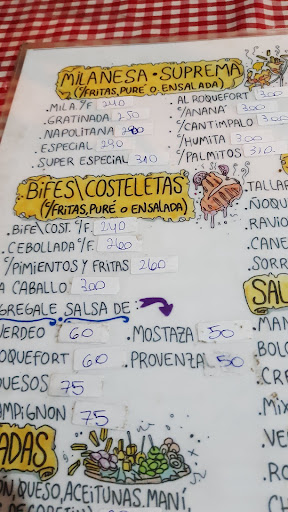 MILANESA · SUPREMA
(C/FRITAS, PURÉ O ENSALADA)
.MILA. C/F 240
.GRATINADA 250
.NAPOLITANA 280
.ESPECIAL 290
.SUPER ESPECIAL 310
AL ROQUEFORT 300
.C/ANANÁ 300
.C/CANTIMPALO 300
.C/HUMITA 300
.C/PALMITOS 310
BIFES\COSTELETAS
(C/FRITAS, PURÉ O ENSALADA)
.BIFE\COST. C/F. 240
.CEBOLLADA C/F. 260
C/PIMIENTOS Y FRITAS 260
A CABALLO 300
GREGALE SALSA DE:
VERDEO 60
OQUEFORT 60
QUESOS 75
AMPIGNON 75
.MOSTAZA 50
.PROVENZA 50
TALLAR
.ÑOQU
.RAVIO
.CANE
.SORR
SAL
.MAN
.BOLO
.CRE
.MIX
.VE
.RO
.CH
ADAS
QUESO, ACEITUNAS, MANÍ,